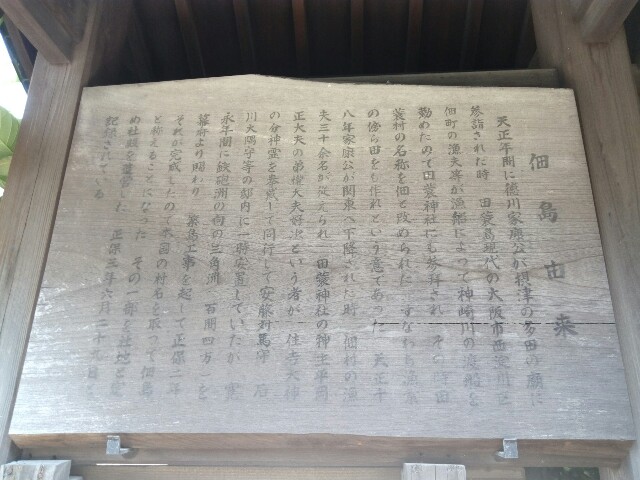 佃島由来
天正年間に徳川家康公が摂津の多田の廟に
参詣された時 田蓑島現代の大阪市西淀川区
佃町の漁夫等が漁船によって神崎川の渡船を
勤めたので田蓑神社にも参拝され その時田
蓑村の名称を佃と改められた すなわち漁業
の傍ら田をも作れという意であった 天正十
八年家康公が関東へ下降された時 佃村の漁
夫三十余名が従えられ 田蓑神社の神主平岡
正大夫の弟権大夫好次という者が 住吉大神
の分神霊を奉戴して同行して安藤対馬守 石
川大隅守等の邸内に一時安置していたが 寛
永年間に鉄砲洲の向の三角洲 百間四方 を
幕府より賜わり 築造工事を起して正保二年
それが完成したので本国の村名を取って佃島
と称えることになった その一番を社地と定
め社殿を造営した 正保三年六月二十九日と
記録されている